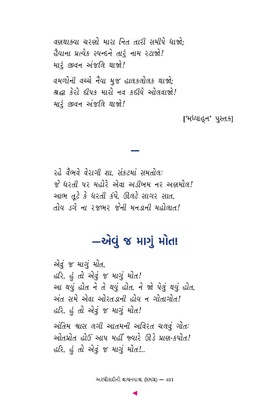 વણથાક્યા ચરણો મારા નિત તારી સમીપે ધાજો;
હૈયાના પ્રત્યેક સ્પન્દને તારું નામ રટાજો!
મારું જીવન અંજલિ થાજો!
વમળોની વચ્ચે નૈયા મુજ હાલકલોલક થાજો;
શ્રદ્ધા કેરો દીપક મારો નવ કદીયે ઓલવાજો!
મારું જીવન અંજલિ થાજો!
['મધ્યાહ્ન' પુસ્તક]
—
રહે વૈભવે વેરાગી શા, સંકટમાં સમતોલ;
જે ધરતી પર મહોરે એવા અડીખમ નર અણમોલ!
આભ તૂટે કે ધરતી કંપે, ઊલટે સાગર સાત,
તોય ડગે ના રજભર જેની મનડાની મહોલાત!
—એવું જ માગું મોત!
એવું જ માગું મોત,
હરિ, હું તો એવું જ માગું મોત!
આ થયું હોત ને તે થયું હોત, ને જો પેલું થયું હોત,
અંત સમે એવા ઓરતડાની હોય ન ગોતાગોત!
હરિ, હું તો એવું જ માગું મોત!
અંતિમ શ્વાસ લગી આતમની અવિરત ચલવું ગોત;
ઓતપ્રોત હોઉં આપ મહીં જ્યારે ઊડે પ્રાણ-કપોત!
હરિ, હું તો એવું જ માગું મોત!..